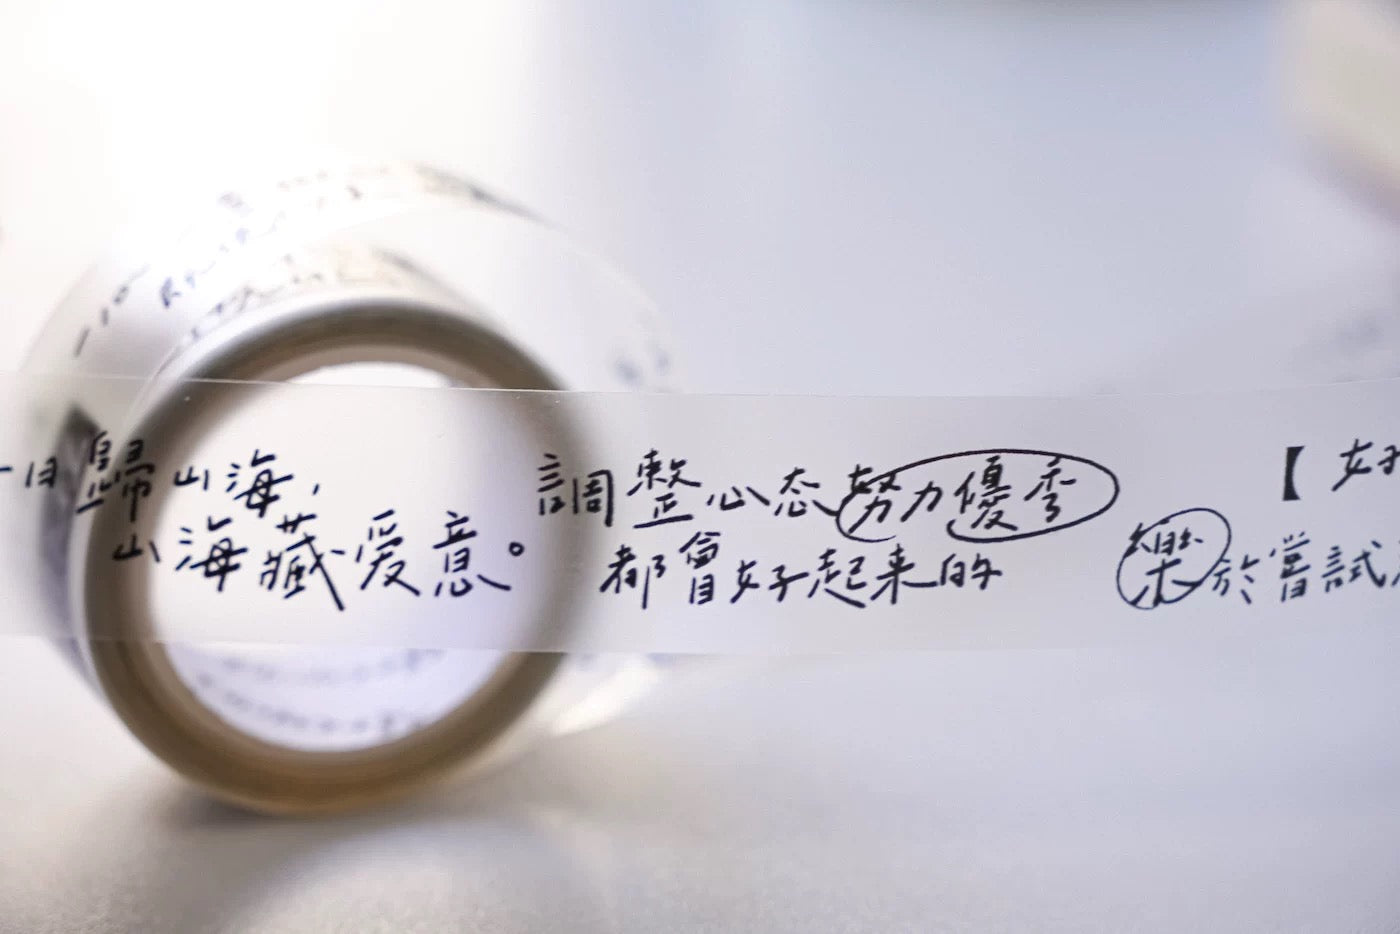 歸山海,
山海藏爱意。
調整心态努力優秀
都會好起来的
【好
樂於嘗試